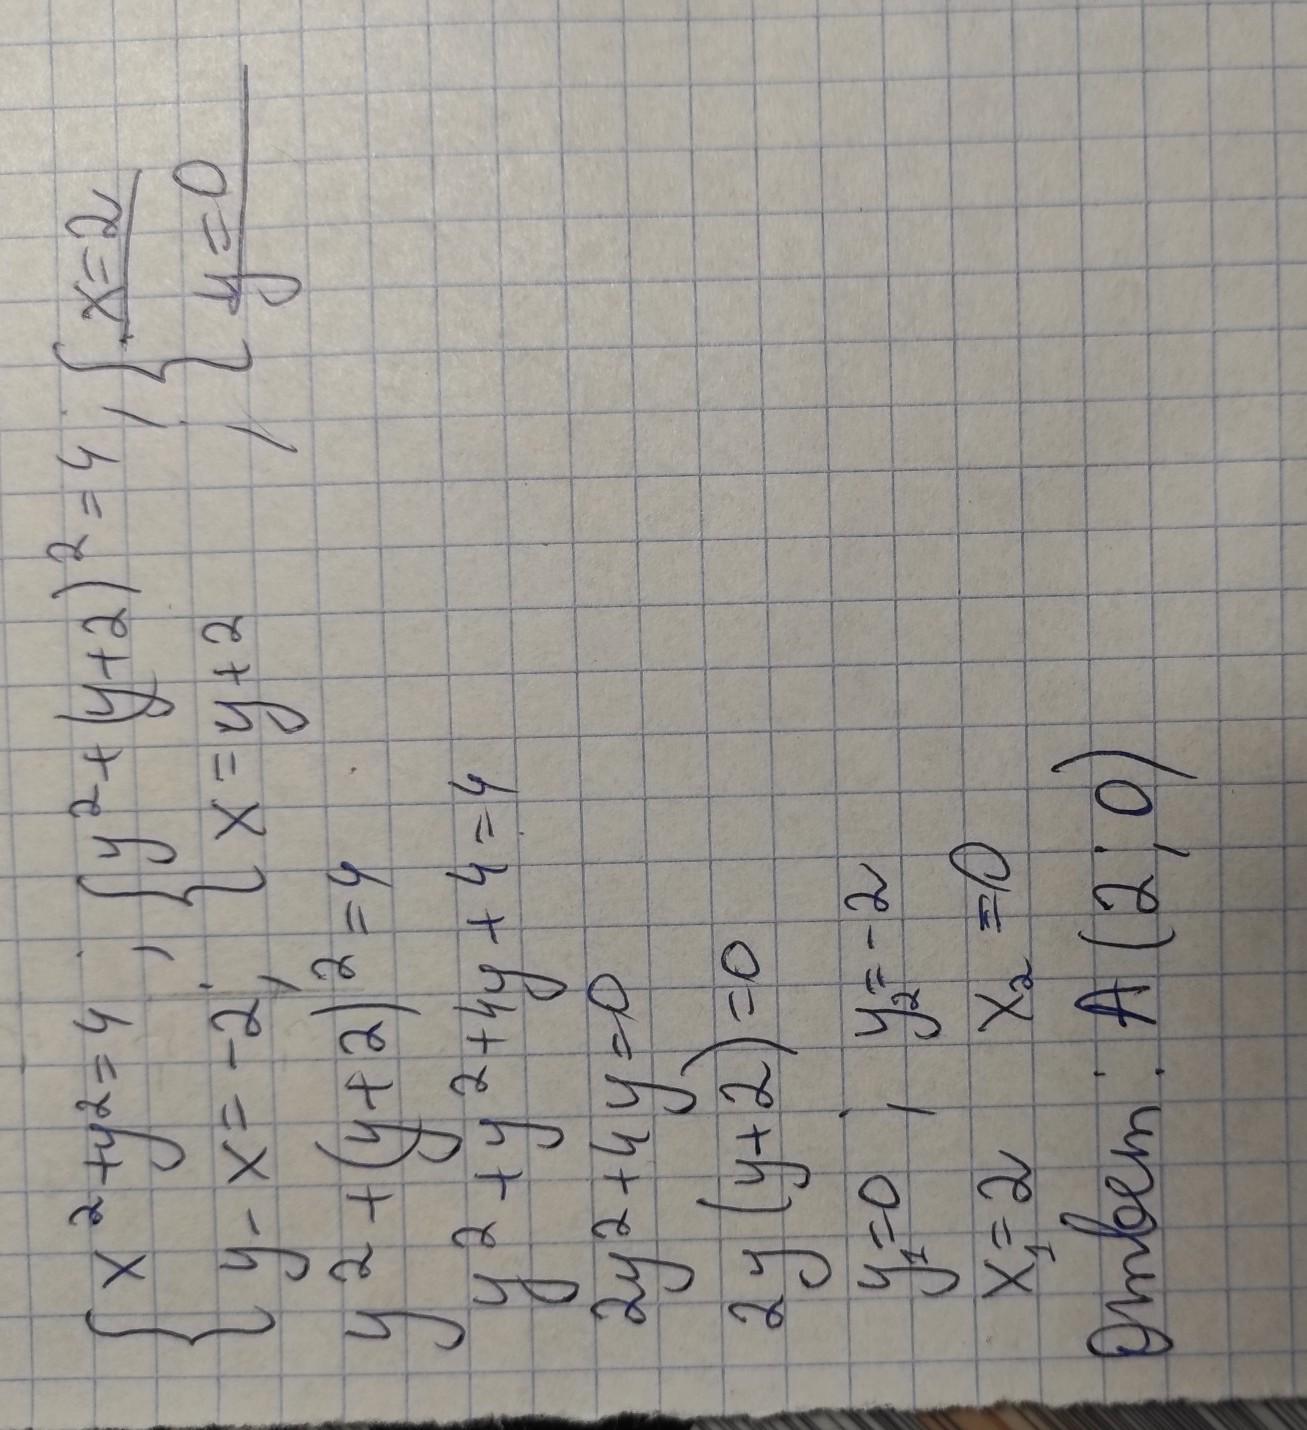 { x²+y²=4 ; { y²+(y+2)²=4 ; { x=2
{ y-x=-2 ; { x=y+2 , { y=0
y²+(y+2)²=4
y²+y²+4y+4=4
2y²+4y=0
2y(y+2)=0
y₁=0 ; y₂=-2
x₁=2 x₂=0
Ответ: A(2;0)